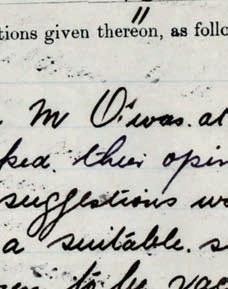 tions given thereon, as follo
M O' was. at
ked. their opin
suggestions w
a suitable. s
to be vac